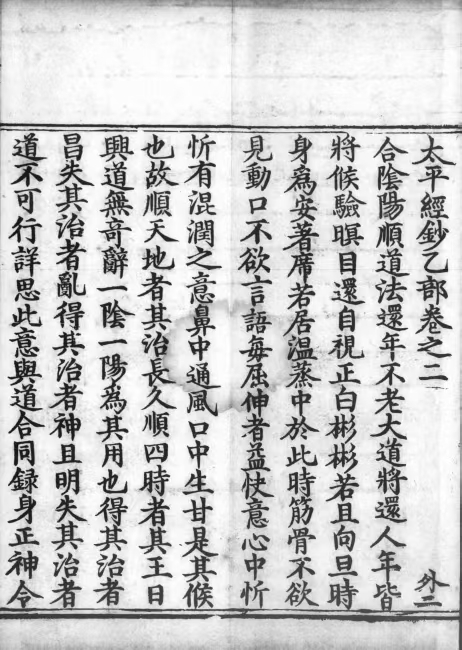 太平經鈔乙部卷之二 外二
合陰陽順道法還年不老大道將還人年皆
將候驗暝目還自視正白彬彬若且向旦時
身為安著席若居溫蒸中於此時筋骨不欲
見動口不欲言語每屈伸者益快意心中忻
忻有混潤之意鼻中通風口中生甘是其候
也故順天地者其治長久順四時者其王日
興道無奇辭一陰一陽為其用也得其治者
昌失其治者亂得其治者神且明失其治者
道不可行詳思此意與道合同録身正神令